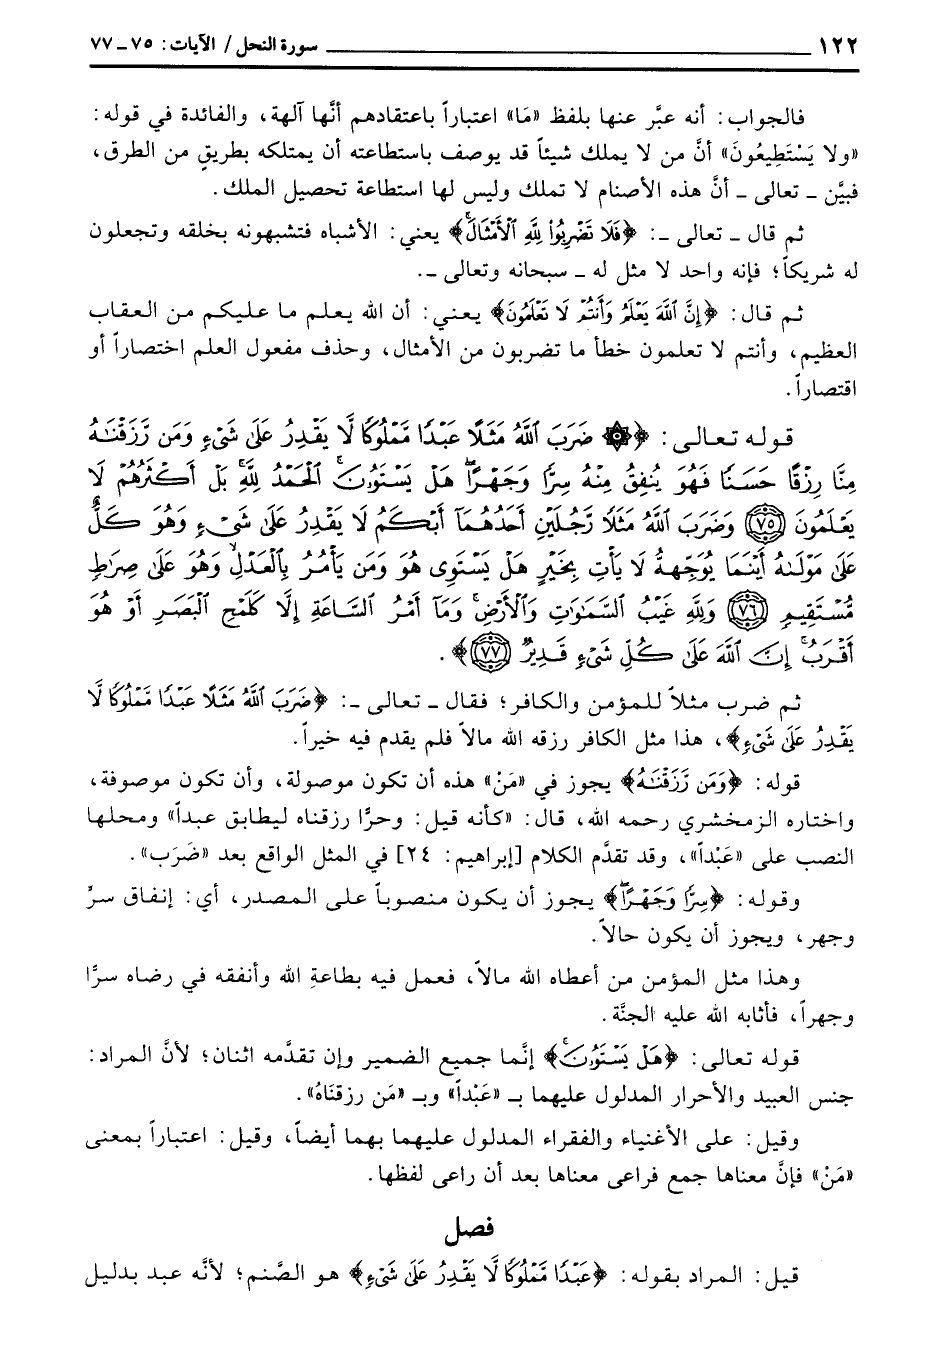 ١٢٢ ـــــــــــــــــــــــــــــــــــــ سورة النحل / الآيات: ٧٥ ـ ٧٧
فالجواب: أنه عبَّر عنها بلفظ «مَا» اعتباراً باعتقادهم أنَّها آلهة، والفائدة في قوله:
«ولا يَسْتَطِيعُونَ» أنَّ من لا يملك شيئاً قد يوصف باستطاعته أن يمتلكه بطريقٍ من الطرق،
فبيَّن ـ تعالى ـ أنَّ هذه الأصنام لا تملك وليس لها استطاعة تحصيل الملك.
ثم قال ـ تعالى ـ: ﴿فَلَا تَضْرِبُوا۟ لِلَّهِ ٱلْأَمْثَالَ﴾ يعني: الأشباه فتشبهونه بخلقه وتجعلون
له شريكاً؛ فإنه واحد لا مثل له ـ سبحانه وتعالى ـ.
ثم قال: ﴿إِنَّ ٱللَّهَ يَعْلَمُ وَأَنتُمْ لَا تَعْلَمُونَ﴾ يعني: أن الله يعلم ما عليكم من العقاب
العظيم، وأنتم لا تعلمون خطأ ما تضربون من الأمثال، وحذف مفعول العلم اختصاراً أو
اقتصاراً.
قوله تعالى: ﴿۞ ضَرَبَ ٱللَّهُ مَثَلًا عَبْدًا مَّمْلُوكًا لَّا يَقْدِرُ عَلَىٰ شَىْءٍ وَمَن رَّزَقْنَـٰهُ
مِنَّا رِزْقًا حَسَنًا فَهُوَ يُنفِقُ مِنْهُ سِرًّا وَجَهْرًا ۖ هَلْ يَسْتَوُۥنَ ۚ ٱلْحَمْدُ لِلَّهِ ۚ بَلْ أَكْثَرُهُمْ لَا
يَعْلَمُونَ ٧٥ وَضَرَبَ ٱللَّهُ مَثَلًا رَّجُلَيْنِ أَحَدُهُمَآ أَبْكَمُ لَا يَقْدِرُ عَلَىٰ شَىْءٍ وَهُوَ كَلٌّ
عَلَىٰ مَوْلَىٰهُ أَيْنَمَا يُوَجِّههُّ لَا يَأْتِ بِخَيْرٍ هَلْ يَسْتَوِى هُوَ وَمَن يَأْمُرُ بِٱلْعَدْلِ ۙ وَهُوَ عَلَىٰ صِرَٰطٍ
مُّسْتَقِيمٍ ٧٦ وَلِلَّهِ غَيْبُ ٱلسَّمَـٰوَٰتِ وَٱلْأَرْضِ ۚ وَمَآ أَمْرُ ٱلسَّاعَةِ إِلَّا كَلَمْحِ ٱلْبَصَرِ أَوْ هُوَ
أَقْرَبُ ۚ إِنَّ ٱللَّهَ عَلَىٰ كُلِّ شَىْءٍ قَدِيرٌ ٧٧﴾.
ثم ضرب مثلاً للمؤمن والكافر؛ فقال ـ تعالى ـ: ﴿ضَرَبَ ٱللَّهُ مَثَلًا عَبْدًا مَّمْلُوكًا لَّا
يَقْدِرُ عَلَىٰ شَىْءٍ﴾، هذا مثل الكافر رزقه الله مالاً فلم يقدم فيه خيراً.
قوله: ﴿وَمَن رَّزَقْنَـٰهُ﴾ يجوز في «مَنْ» هذه أن تكون موصولة، وأن تكون موصوفة،
واختاره الزمخشري رحمه الله، قال: «كأنه قيل: وحرًّا رزقناه ليطابق عبداً» ومحلها
النصب على «عَبْداً»، وقد تقدَّم الكلام [إبراهيم: ٢٤] في المثل الواقع بعد «ضَرَب».
وقوله: ﴿سِرًّا وَجَهْرًا ۖ﴾ يجوز أن يكون منصوباً على المصدر، أي: إنفاق سرٍّ
وجهر، ويجوز أن يكون حالاً.
وهذا مثل المؤمن من أعطاه الله مالاً، فعمل فيه بطاعةِ الله وأنفقه في رضاه سرًّا
وجهراً، فأثابه الله عليه الجنَّة.
قوله تعالى: ﴿هَلْ يَسْتَوُۥنَ ۚ﴾ إنَّما جميع الضمير وإن تقدَّمه اثنان؛ لأنَّ المراد:
جنس العبيد والأحرار المدلول عليهما بـ «عَبْداً» وبـ «مَن رزقنَاهُ».
وقيل: على الأغنياء والفقراء المدلول عليهما بهما أيضاً، وقيل: اعتباراً بمعنى
«مَنْ» فإنَّ معناها جمع فراعى معناها بعد أن راعى لفظها.
فصل
قيل: المراد بقوله: ﴿عَبْدًا مَّمْلُوكًا لَّا يَقْدِرُ عَلَىٰ شَىْءٍ﴾ هو الصَّنم؛ لأنَّه عبد بدليل